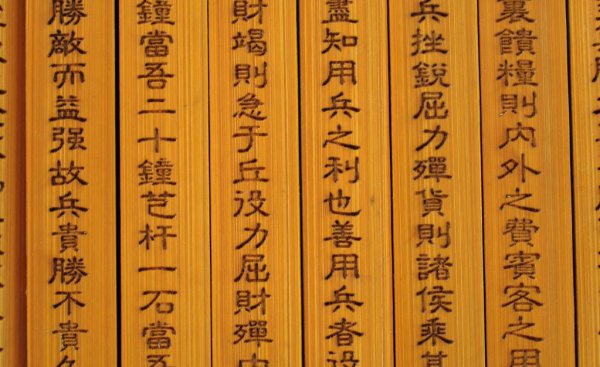 裏饋糧則内外之費賓客之用
兵挫鋭屈力殫貨則諸侯乘其
盡知用兵之利也善用兵者役
財竭則急于丘役力屈財殫中
鐘當吾二十鐘芑杆一石當吾
勝敵而益强故兵貴勝不貴久